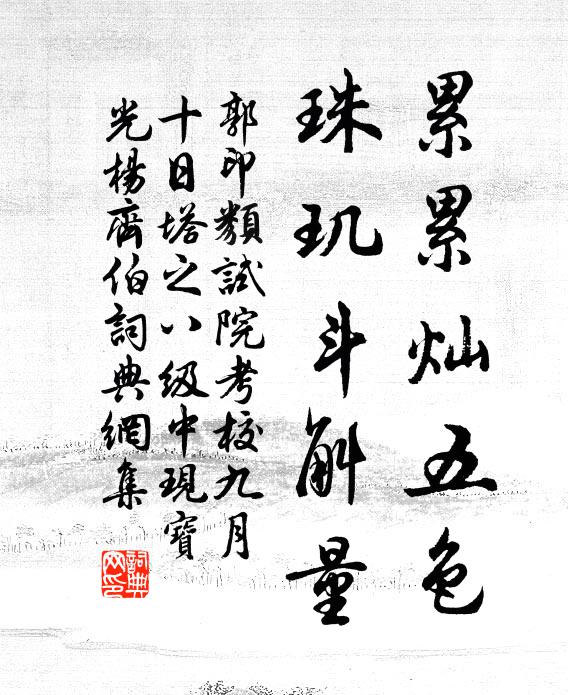 累累灿五色
珠玑斗斛量
郭印類試院考校九月
十日塔之八级中現寶
光楊齊伯詞典網集
詞典网印